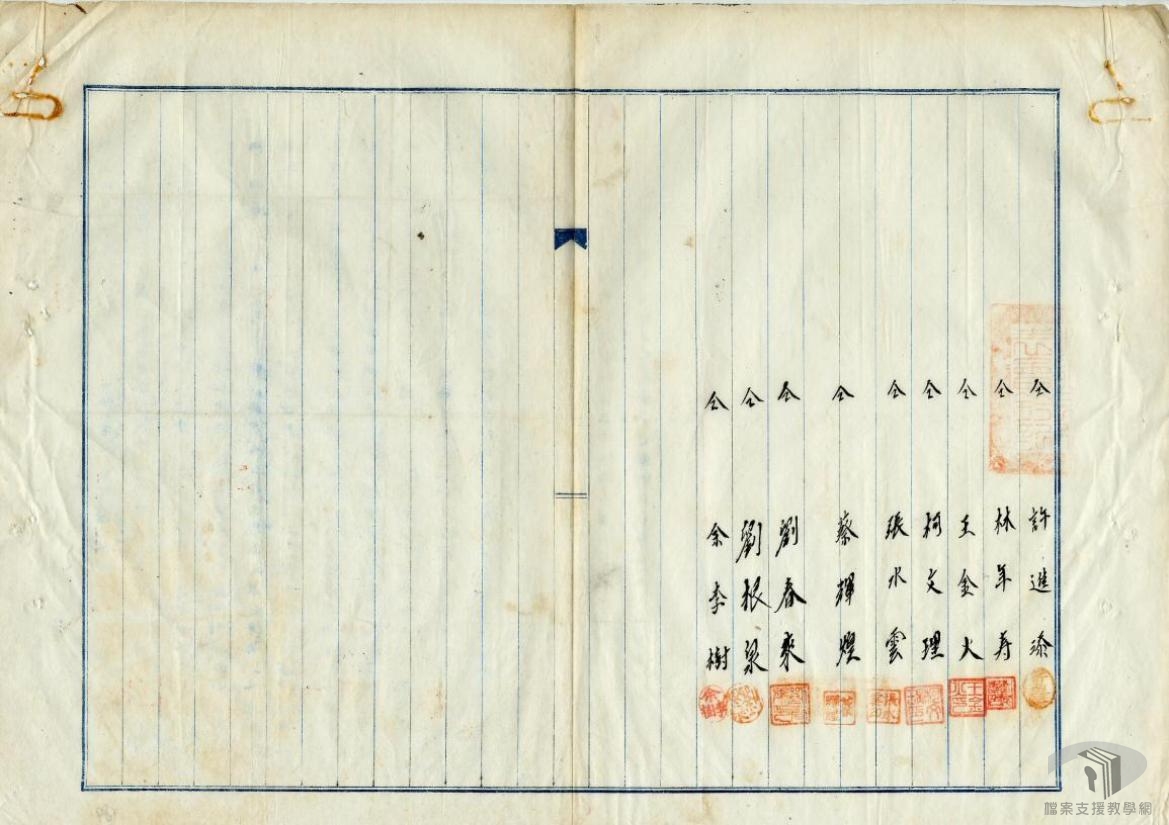 仝 許進添
仝 林年寿
仝 王金火
仝 柯文理
仝 張水雲
仝 蔡輝燦
仝 劉春來
仝 劉根泉
仝 余李樹
檔案支援教學網